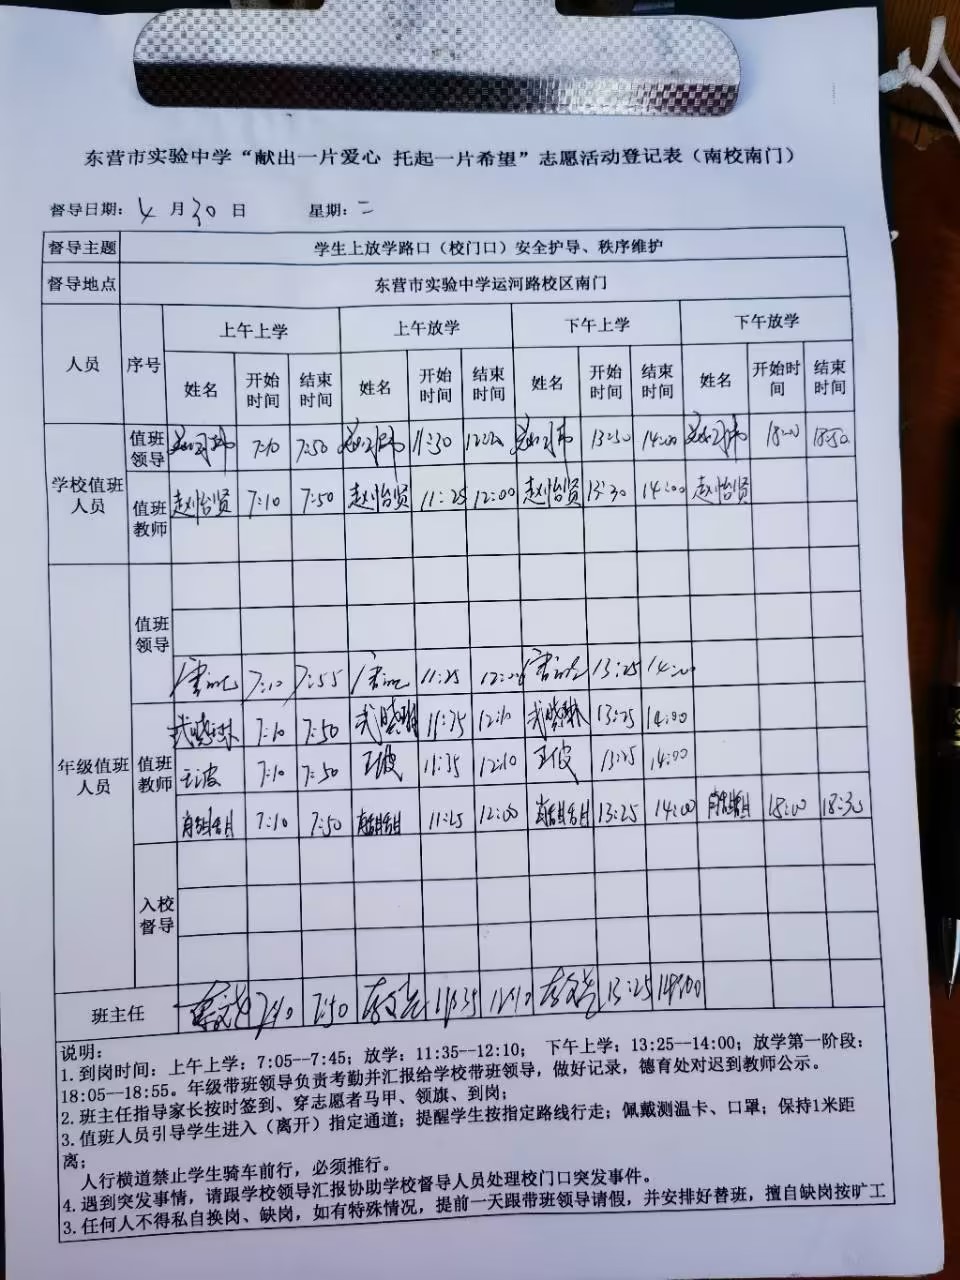 东营市实验中学“献出一片爱心 托起一片希望”志愿活动登记表（南校南门）
督导日期：4月30日 星期：二
督导主题 学生上放学路口（校门口）安全护导、秩序维护
督导地点 东营市实验中学运河路校区南门
人员 序号 上午上学 上午放学 下午上学 下午放学
姓名 开始时间 结束时间 姓名 开始时间 结束时间 姓名 开始时间 结束时间 姓名 开始时间 结束时间
学校值班人员
值班领导 7:10 7:50 11:30 12:00 13:30 14:00 18:00 18:50
值班教师 赵怡贤 7:10 7:50 赵怡贤 11:25 12:00 赵怡贤 13:30 14:00 赵怡贤
年级值班人员
值班领导
7:10 7:55 11:25 12:00 13:25 14:00
值班教师
武晓琳 7:10 7:50 武晓琳 11:35 12:10 武晓琳 13:25 14:00
王波 7:10 7:50 王波 11:35 12:10 王波 13:25 14:00
7:10 7:50 11:25 12:00 13:25 14:00 18:00 18:30
入校督导
班主任 7:10 7:50 11:35 12:10 13:25 14:00
说明：
1. 到岗时间：上午上学：7:05--7:45；放学：11:35--12:10； 下午上学：13:25--14:00；放学第一阶段：
18:05--18:55。年级带班领导负责考勤并汇报给学校带班领导，做好记录，德育处对迟到教师公示。
2. 班主任指导家长按时签到、穿志愿者马甲、领旗、到岗；
3. 值班人员引导学生进入（离开）指定通道；提醒学生按指定路线行走；佩戴测温卡、口罩；保持1米距
离；
人行横道禁止学生骑车前行，必须推行。
4. 遇到突发事情，请跟学校领导汇报协助学校督导人员处理校门口突发事件。
3. 任何人不得私自换岗、缺岗，如有特殊情况，提前一天跟带班领导请假，并安排好替班，擅自缺岗按旷工